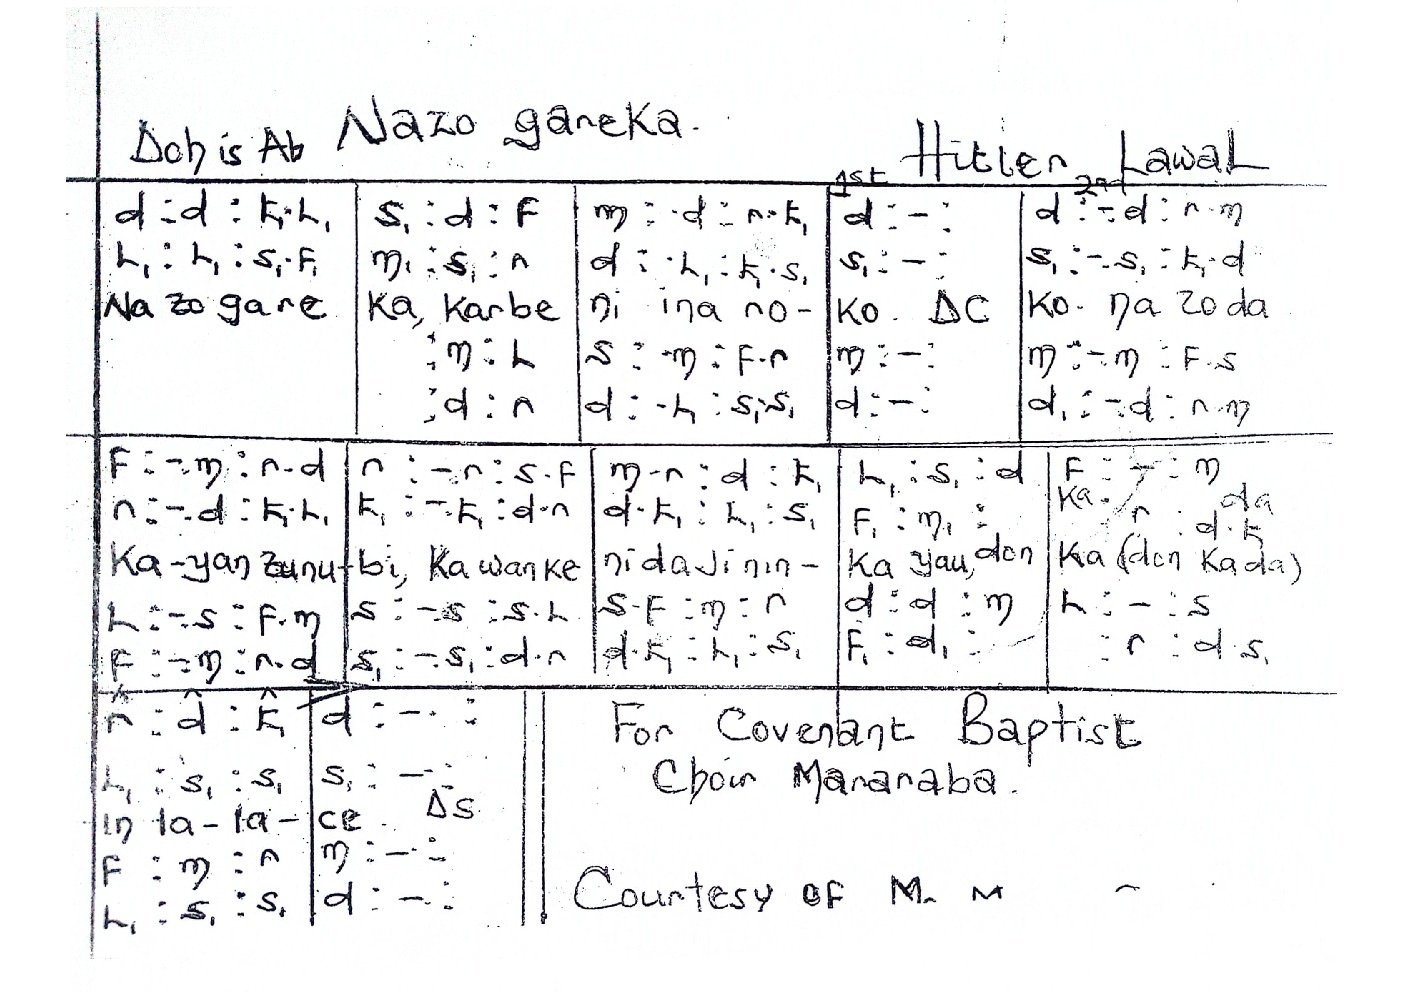 Doh is Ab Nazo gareka.
Hitler Lawal
1st 2nd
d : d : t₁.l₁ | s₁ : d : f | m : -.d : r.t₁ | d : - : | d : -.d : r.m
l₁ : l₁ : s₁.f₁ | m₁ : s₁ : r | d : -.l₁ : t₁.s₁ | s₁ : - : | s₁ : -.s₁ : t₁.d
Na zo gare | ka, karbe | ni ina ro- | ko. DC | ko. na zo da
: m : l | s : -.m : f.r | m : - : | m : -.m : f.s
: d : r | d : -.l : s₁.s₁ | d : - : | d₁ : -.d : r.m
f : -.m : r.d | r : -.r : s.f | m.r : d : t₁ | l₁ : s₁ : d | f : - : m
ka. da
r : -.d : t₁.l₁ | t₁ : -.t₁ : d.r | d.t₁ : l₁ : s₁ | f₁ : m₁ : | r : d.t₁
ka-yan zunu- | bi, ka wanke | ni da jinin- | ka yau, don | ka (don ka da)
l : -.s : f.m | s : -.s : s.l | s.f : m : r | d : d : m | l : - : s
f : -.m : r.d | s₁ : -.s₁ : d.r | d.t₁ : l₁ : s₁ | f₁ : d₁ : | : r : d.s₁
r : d : t₁ | d : - :
l₁ : s₁ : s₁ | s₁ : - :
in la-la- | ce. DS
f : m : r | m : - :
l₁ : s₁ : s₁ | d : - :
For Covenant Baptist
Choir Mararaba.
Courtesy of M. M